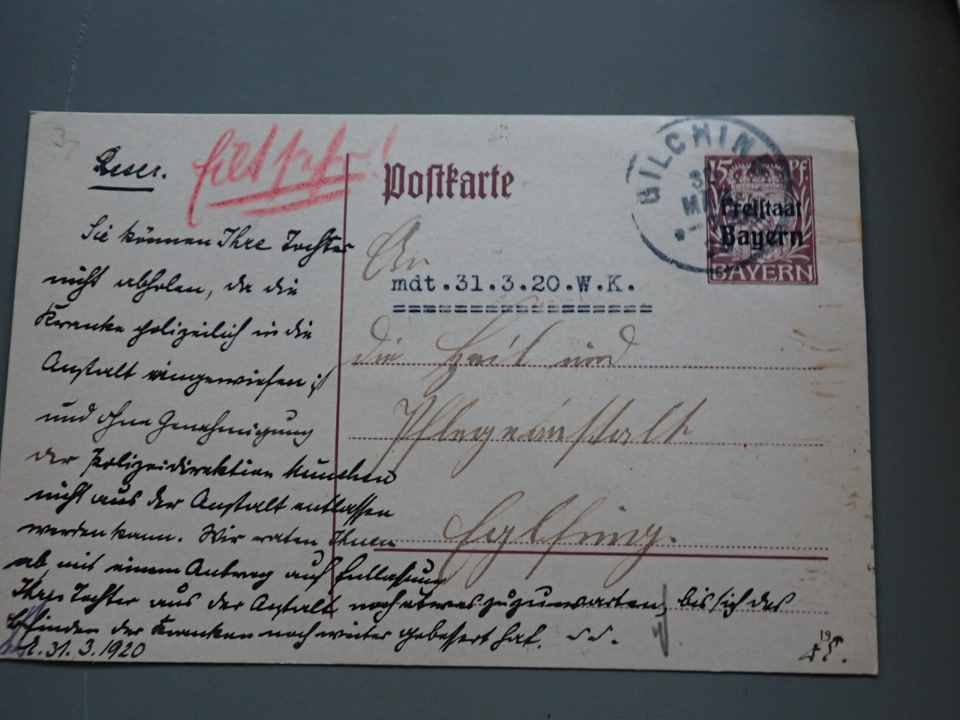 Reser.
Eilt sehr!
Sie können Ihre Tochter
nicht abholen, da die
Kranke polizeilich in die
Anstalt eingewiesen ist
und ohne Genehmigung
der Polizeidirektion München
nicht aus der Anstalt entlassen
werden kann. Wir raten Ihnen
ab, mit einem Antrag auf Entlassung
Ihrer Tochter aus der Anstalt noch etwas zuzuwarten, bis sich das
Befinden der Kranken noch weiter gebessert hat.
31.3.1920
Postkarte
An
mdt.31.3.20.W.K.
die Heil und
Pflegeanstalt
Eglfing.
GILCHING
MRZ
15 Pf
Freistaat
Bayern
BAYERN
19